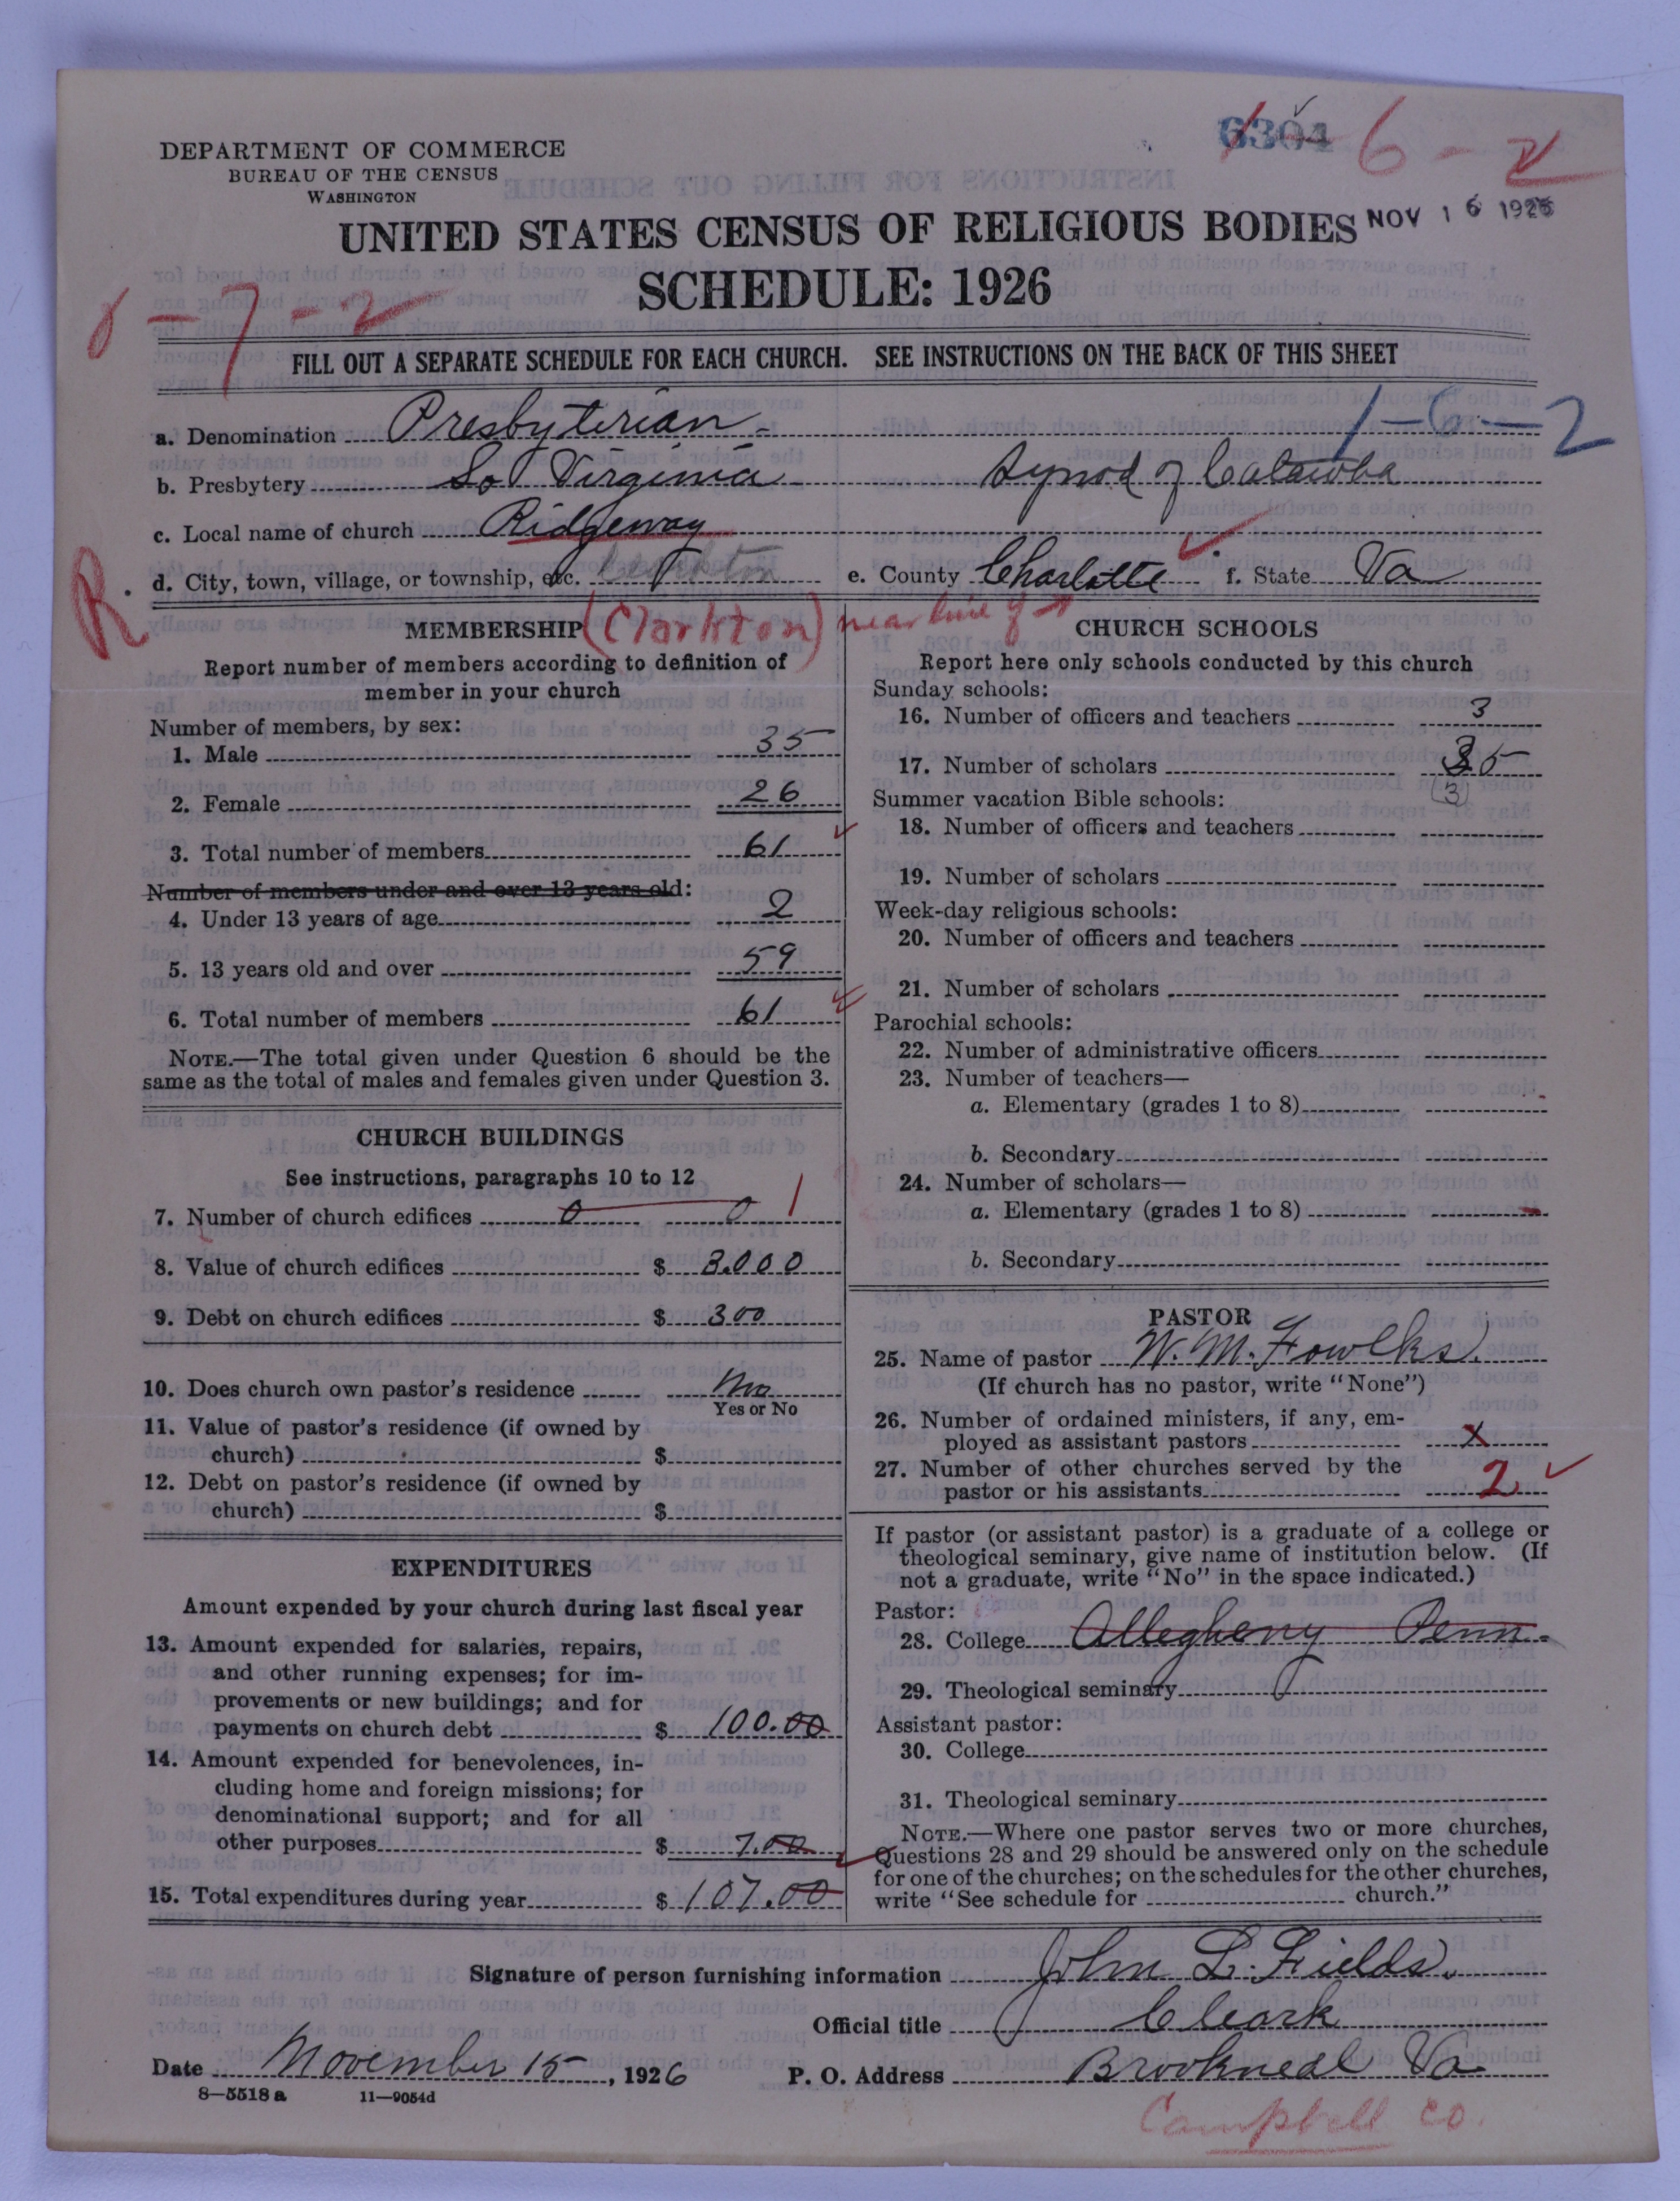 6304 6-2
DEPARTMENT OF COMMERCE
BUREAU OF THE CENSUS
WASHINGTON
UNITED STATES CENSUS OF RELIGIOUS BODIES NOV 16 1926
SCHEDULE: 1926
-7-2
FILL OUT A SEPARATE SCHEDULE FOR EACH CHURCH. SEE INSTRUCTIONS ON THE BACK OF THIS SHEET
1-6-2
a. Denomination Presbyterian
b. Presbytery So Virginia Synod of Catawba
c. Local name of church Ridgeway
R. d. City, town, village, or township, etc. Clarkton e. County Charlotte f. State Va
(Clarkton) near line of
MEMBERSHIP
Report number of members according to definition of
member in your church
Number of members, by sex:
1. Male 35
2. Female 26
3. Total number of members 61
Number of members under and over 13 years old:
4. Under 13 years of age 2
5. 13 years old and over 59
6. Total number of members 61
NOTE.—The total given under Question 6 should be the
same as the total of males and females given under Question 3.
CHURCH BUILDINGS
See instructions, paragraphs 10 to 12
7. Number of church edifices 0 0 1
8. Value of church edifices $ 3.000
9. Debt on church edifices $ 300
10. Does church own pastor's residence No
Yes or No
11. Value of pastor's residence (if owned by
church) $
12. Debt on pastor's residence (if owned by
church) $
EXPENDITURES
Amount expended by your church during last fiscal year
13. Amount expended for salaries, repairs,
and other running expenses; for im-
provements or new buildings; and for
payments on church debt $ 100.00
14. Amount expended for benevolences, in-
cluding home and foreign missions; for
denominational support; and for all
other purposes $ 7.00
15. Total expenditures during year $ 107.00
CHURCH SCHOOLS
Report here only schools conducted by this church
Sunday schools:
16. Number of officers and teachers 3
17. Number of scholars 35
(3)
Summer vacation Bible schools:
18. Number of officers and teachers
19. Number of scholars
Week-day religious schools:
20. Number of officers and teachers
21. Number of scholars
Parochial schools:
22. Number of administrative officers
23. Number of teachers—
a. Elementary (grades 1 to 8)
b. Secondary
24. Number of scholars—
a. Elementary (grades 1 to 8)
b. Secondary
PASTOR
25. Name of pastor W. M. Fowlks.
(If church has no pastor, write "None")
26. Number of ordained ministers, if any, em-
ployed as assistant pastors x
27. Number of other churches served by the
pastor or his assistants 2
If pastor (or assistant pastor) is a graduate of a college or
theological seminary, give name of institution below. (If
not a graduate, write "No" in the space indicated.)
Pastor:
28. College Allegheny Penn.
29. Theological seminary
Assistant pastor:
30. College
31. Theological seminary
NOTE.—Where one pastor serves two or more churches,
Questions 28 and 29 should be answered only on the schedule
for one of the churches; on the schedules for the other churches,
write "See schedule for church."
Signature of person furnishing information John L. Fields.
Official title Cleark
Date November 15, 1926 P. O. Address Brookneal Va
8—5518 a 11—9054d
Campbell Co.